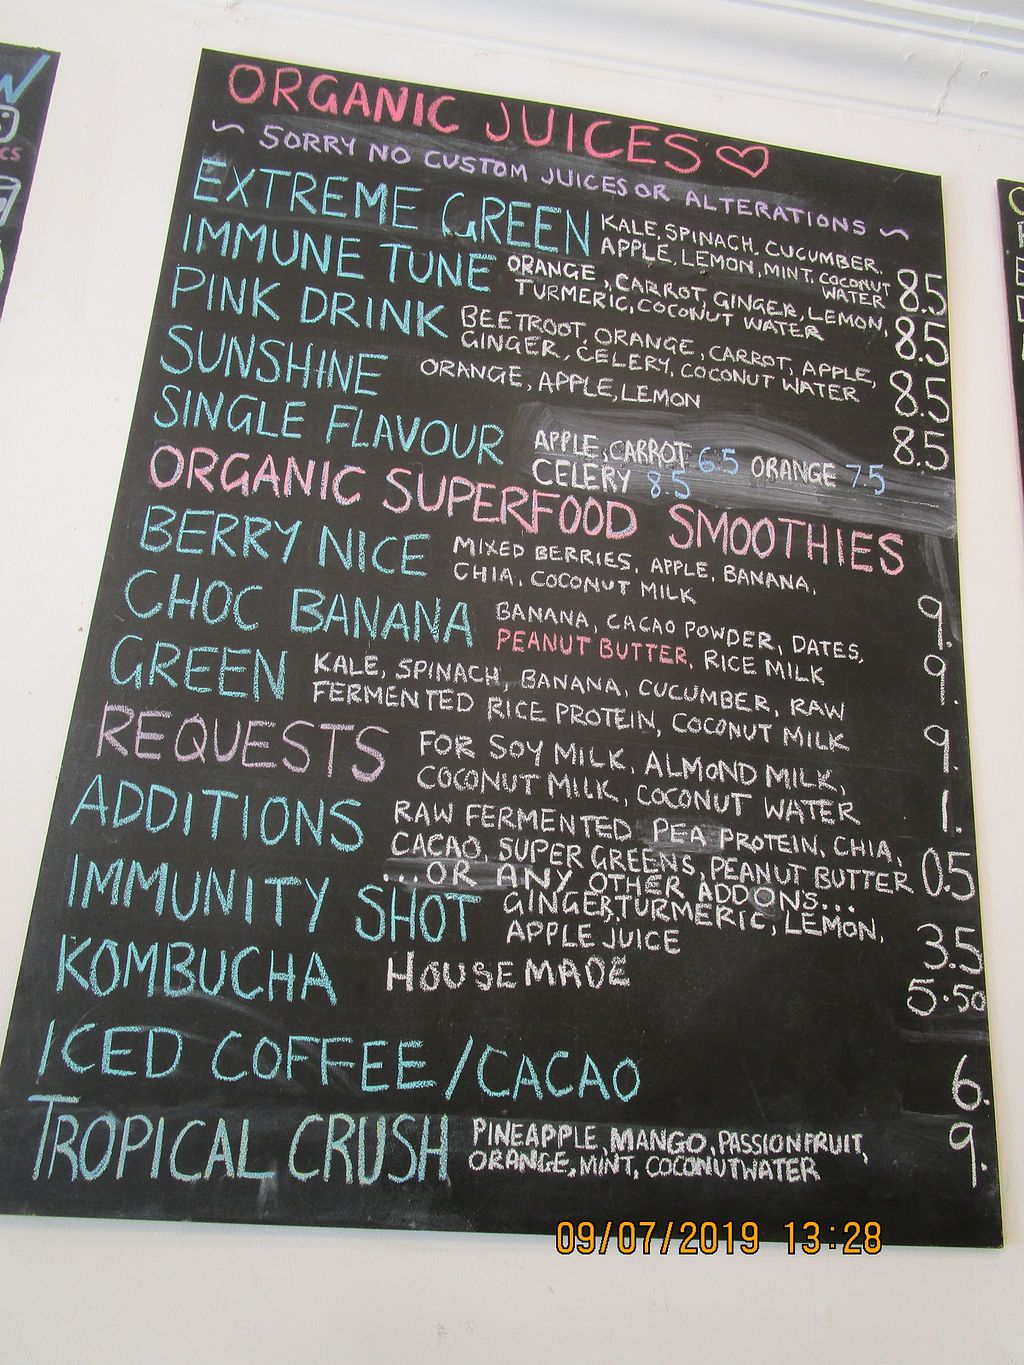 ORGANIC JUICES ♡
~ SORRY NO CUSTOM JUICES OR ALTERATIONS ~
EXTREME GREEN KALE, SPINACH, CUCUMBER,
APPLE, LEMON, MINT, COCONUT
WATER 8.5
IMMUNE TUNE ORANGE, CARROT, GINGER, LEMON,
TURMERIC, COCONUT WATER 8.5
PINK DRINK BEETROOT, ORANGE, CARROT, APPLE,
GINGER, CELERY, COCONUT WATER 8.5
SUNSHINE ORANGE, APPLE, LEMON 8.5
SINGLE FLAVOUR APPLE, CARROT 6.5 ORANGE 7.5
CELERY 8.5
ORGANIC SUPERFOOD SMOOTHIES
BERRY NICE MIXED BERRIES, APPLE, BANANA,
CHIA, COCONUT MILK 9.
CHOC BANANA BANANA, CACAO POWDER, DATES,
PEANUT BUTTER, RICE MILK 9.
GREEN KALE, SPINACH, BANANA, CUCUMBER, RAW
FERMENTED RICE PROTEIN, COCONUT MILK 9.
REQUESTS FOR SOY MILK, ALMOND MILK,
COCONUT MILK, COCONUT WATER 1.
ADDITIONS RAW FERMENTED PEA PROTEIN, CHIA,
CACAO, SUPER GREENS, PEANUT BUTTER 0.5
...OR ANY OTHER ADD ONS...
IMMUNITY SHOT GINGER, TURMERIC, LEMON,
APPLE JUICE 3.5
KOMBUCHA HOUSEMADE 5.50
ICED COFFEE/CACAO 6.
TROPICAL CRUSH PINEAPPLE, MANGO, PASSIONFRUIT,
ORANGE, MINT, COCONUTWATER 9.
09/07/2019 13:28